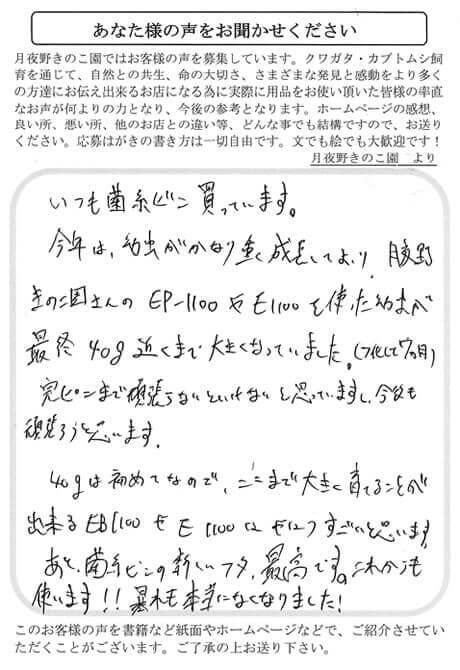 あなた様の声をお聞かせください
月夜野きのこ園ではお客様の声を募集しています。クワガタ・カブトムシ飼
育を通じて、自然との共生、命の大切さ、さまざまな発見と感動をより多く
の方達にお伝え出来るお店になる為に実際に用品をお使い頂いた皆様の率直
なお声が何よりの力となり、今後の参考となります。ホームページの感想、
良い所、悪い所、他のお店との違い等、どんな事でも結構ですので、お送り
ください。応募はがきの書き方は一切自由です。文でも絵でも大歓迎です！
月夜野きのこ園 より
いつも菌糸ビン買っています。
今年は、幼虫がかなり重く成長しており、月夜野
きのこ園さんの EP-1100 や E1100 を使った幼虫が
最終 40g 近くまで大きくなっていました。(フ化して7ヶ月)
完ピンまで頑張らないといけないと思っていますし、今後も
頑張ろうと思います。
40gは初めてなので、ここまで大きく育てることが
出来る EP1100 や E1100 は すごいと思います
あと、菌糸ビンの新しいフタ、最高です。これからも
使います!! 暴れも本当になくなりました!
このお客様の声を書籍など紙面やホームページなどで、ご紹介させてい
ただくことがございます。ご了承の上お送り下さい。